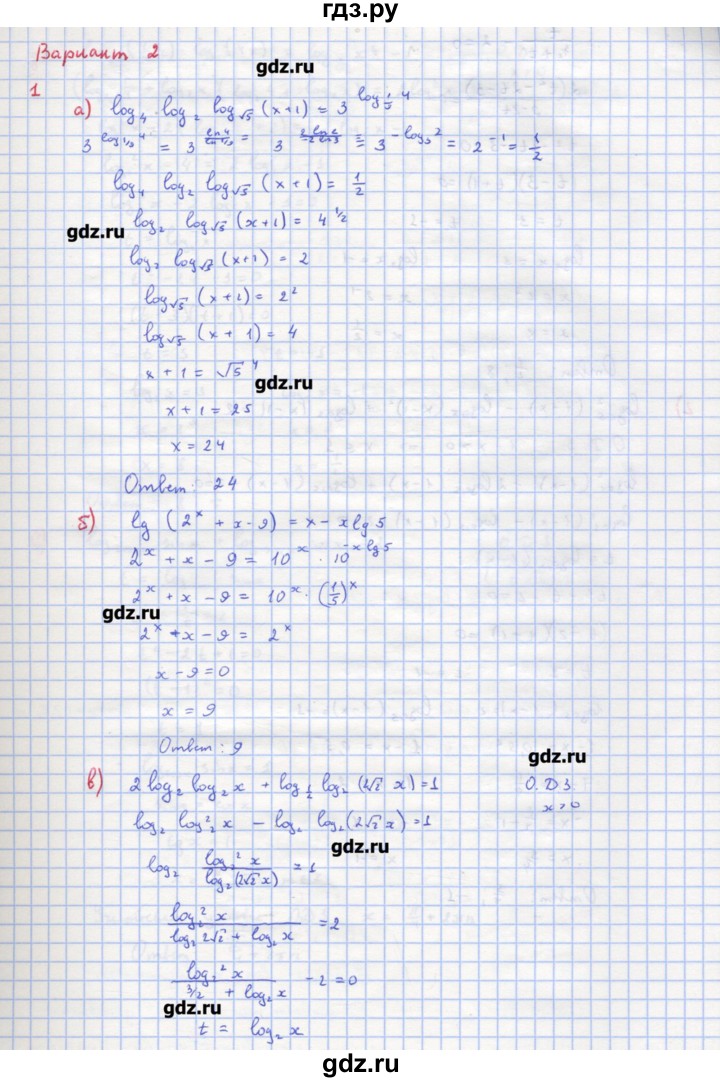 гдз.ру
Вариант 2
gdz.ru
1
а) log₄ log₂ log_√5 (x+1) = 3^(log_(1/3) 4)
3^(log_(1/3) 4) = 3^(ln 4 / ln 1/3) = 3 = 3^(-log₃ 2) = 2⁻¹ = 1/2
log₄ log₂ log_√5 (x+1) = 1/2
log₂ log_√5 (x+1) = 4^(1/2)
gdz.ru
log₂ log_√5 (x+1) = 2
log_√5 (x+1) = 2²
log_√5 (x+1) = 4
x+1 = √5⁴
gdz.ru
x+1 = 25
x = 24
Ответ: 24
б) lg (2ˣ + x - 9) = x - x lg 5
2ˣ + x - 9 = 10ˣ · 10^(-x lg 5)
2ˣ + x - 9 = 10ˣ · (1/5)ˣ
gdz.ru
2ˣ + x - 9 = 2ˣ
x - 9 = 0
x = 9
Ответ: 9
gdz.ru
в) 2 log₂ log₂ x + log_(1/2) log₂ (2√2 x) = 1 О.Д.З.
x > 0
log₂ log₂² x - log₂ log₂ (2√2 x) = 1
gdz.ru
log₂ (log₂² x / log₂ (2√2 x)) = 1
log₂² x / (log₂ 2√2 + log₂ x) = 2
log₂² x / (3/2 + log₂ x) - 2 = 0
gdz.ru
t = log₂ x
gdz.ru